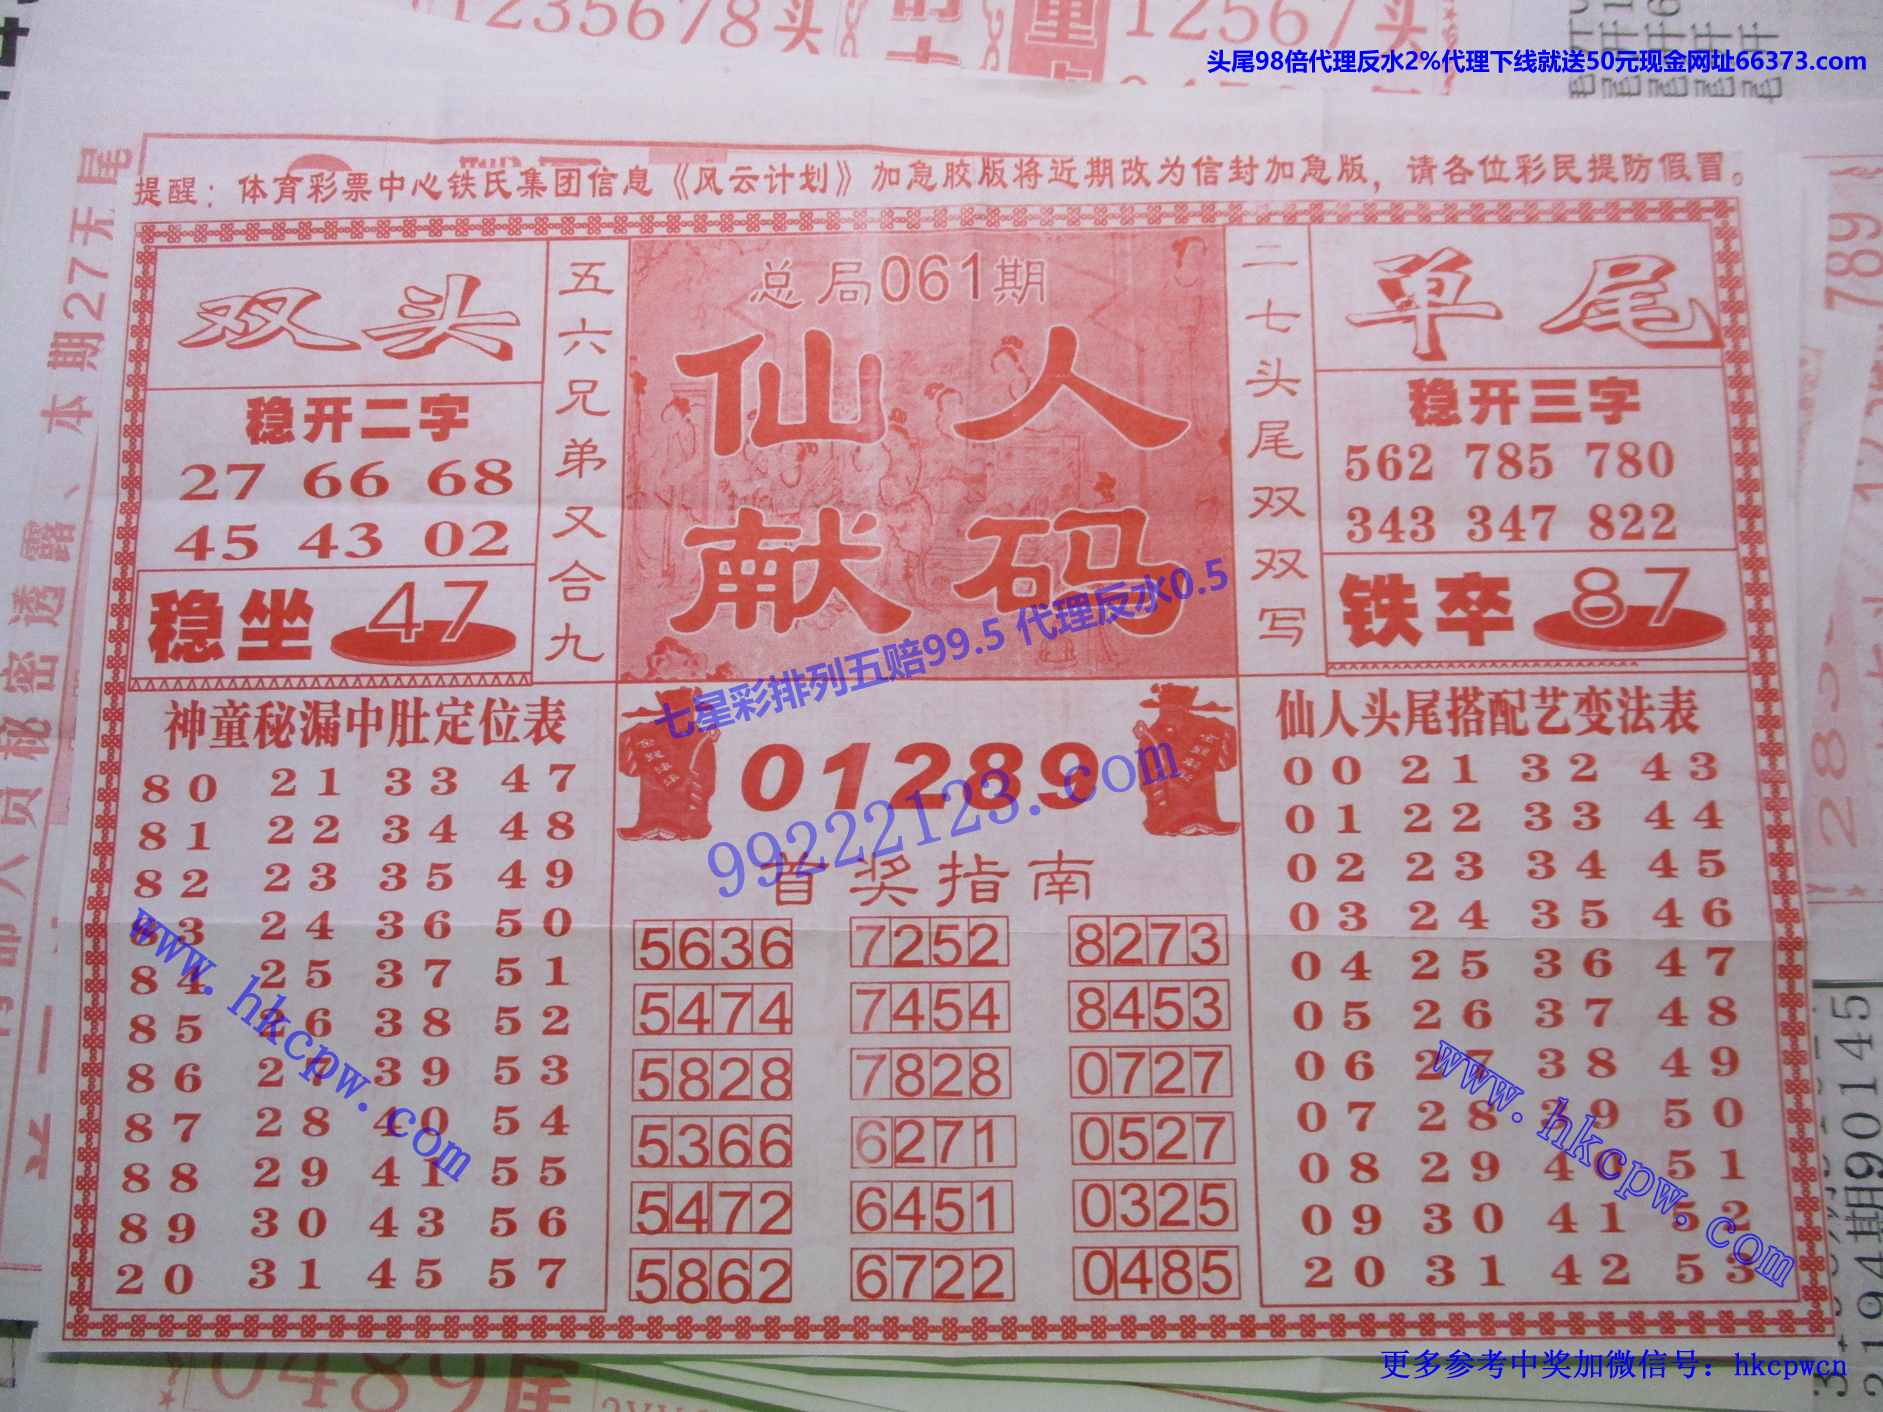 1235678头
12567头
头尾98倍代理反水2%代理下线就送50元现金网址66373.com
提醒：体育彩票中心铁氏集团信息《风云计划》加急胶版将近期改为信封加急版，请各位彩民提防假冒。
双头
稳开二字
27 66 68
45 43 02
稳坐 47
五六兄弟又合九
总局061期
仙人
献码
二七头尾双双写
单尾
稳开三字
562 785 780
343 347 822
铁卒 87
七星彩排列五赔99.5 代理反水0.5
99222123.com
神童秘漏中肚定位表
80 21 33 47
81 22 34 48
82 23 35 49
83 24 36 50
84 25 37 51
85 26 38 52
86 27 39 53
87 28 40 54
88 29 41 55
89 30 43 56
20 31 45 57
01289
首奖指南
5636 7252 8273
5474 7454 8453
5828 7828 0727
5366 6271 0527
5472 6451 0325
5862 6722 0485
仙人头尾搭配艺变法表
00 21 32 43
01 22 33 44
02 23 34 45
03 24 35 46
04 25 36 47
05 26 37 48
06 27 38 49
07 28 39 50
08 29 40 51
09 30 41 52
20 31 42 53
www.hkcpw.com
www.hkcpw.com
本期27无尾
789
2194期90145
0489尾
更多参考中奖加微信号：hkcpwcn